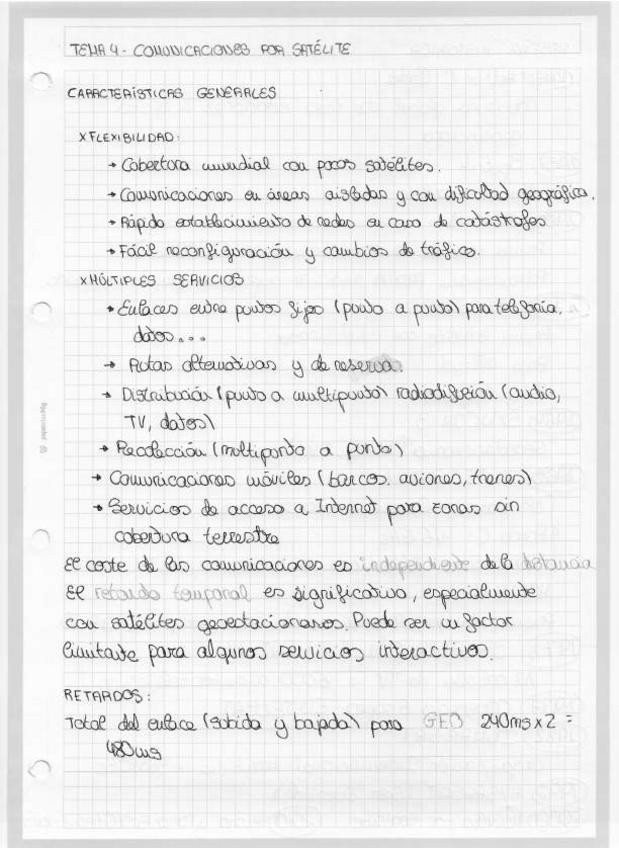 TEMA 4 - COMUNICACIONES POR SATÉLITE
CARACTERÍSTICAS GENERALES
x FLEXIBILIDAD:
→ Cobertura mundial con pocos satélites.
→ Comunicaciones en áreas aisladas y con dificultad geográfica.
→ Rápido establecimiento de redes en caso de catástrofes
→ Fácil reconfiguración y cambios de tráfico.
x MÚLTIPLES SERVICIOS
→ Enlaces entre puntos fijos (punto a punto) para telefonía,
datos...
→ Rutas alternativas y de reserva.
→ Distribución (punto a multipunto) radiodifusión (audio,
TV, datos)
→ Recolección (multipunto a punto)
→ Comunicaciones móviles (barcos, aviones, trenes)
→ Servicios de acceso a Internet para zonas sin
cobertura terrestre
El coste de las comunicaciones es independiente de la distancia
El retardo temporal es significativo, especialmente
con satélites geoestacionarios. Puede ser un factor
limitante para algunos servicios interactivos.
RETARDOS:
Total del enlace (subida y bajada) para GEO 240ms x 2 =
480ms